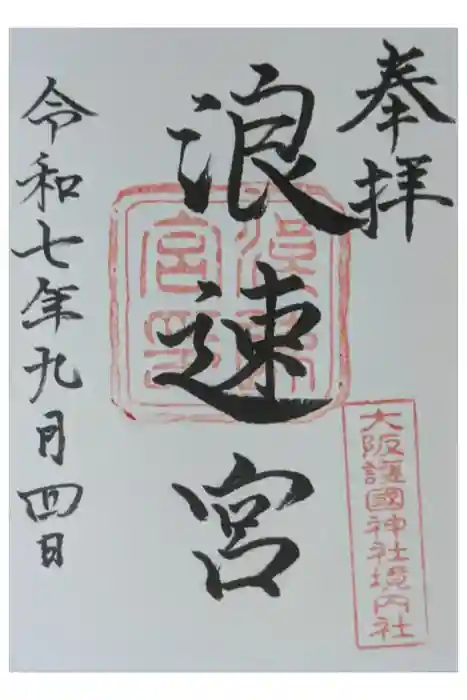 奉拝
大阪護國神社境内社
浪速宮
令和七年九月四日